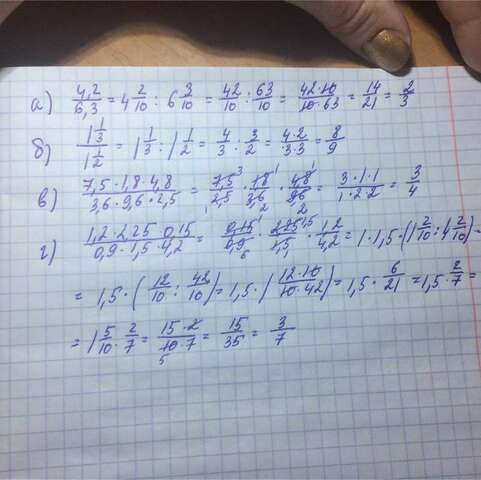 а) 4,2/6,3 = 4 2/10 : 6 3/10 = 42/10 : 63/10 = 42·10/10·63 = 14/21 = 2/3
б) 1 1/3 / 1 1/2 = 1 1/3 : 1 1/2 = 4/3 : 3/2 = 4·2/3·3 = 8/9
в) 7,5·1,8·4,8/3,6·9,6·2,5 = 7,5/2,5 · 1,8/3,6 · 4,8/9,6 = 3·1·1/1·2·2 = 3/4
г) 1,2·2,25·0,15/0,9·1,5·4,2 = 0,15/0,9 · 2,25/1,5 · 1,2/4,2 = 1·1,5·(1 2/10 : 4 2/10) =
= 1,5·(12/10 : 42/10) = 1,5·(12·10/10·42) = 1,5· 6/21 = 1,5· 2/7 =
= 1 5/10 · 2/7 = 15·2/10·7 = 15/35 = 3/7